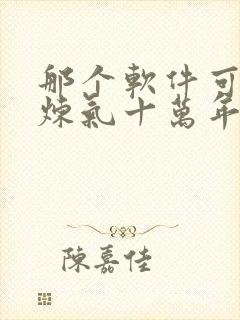 那个軟件可
煉氣十萬年
陳嘉佳